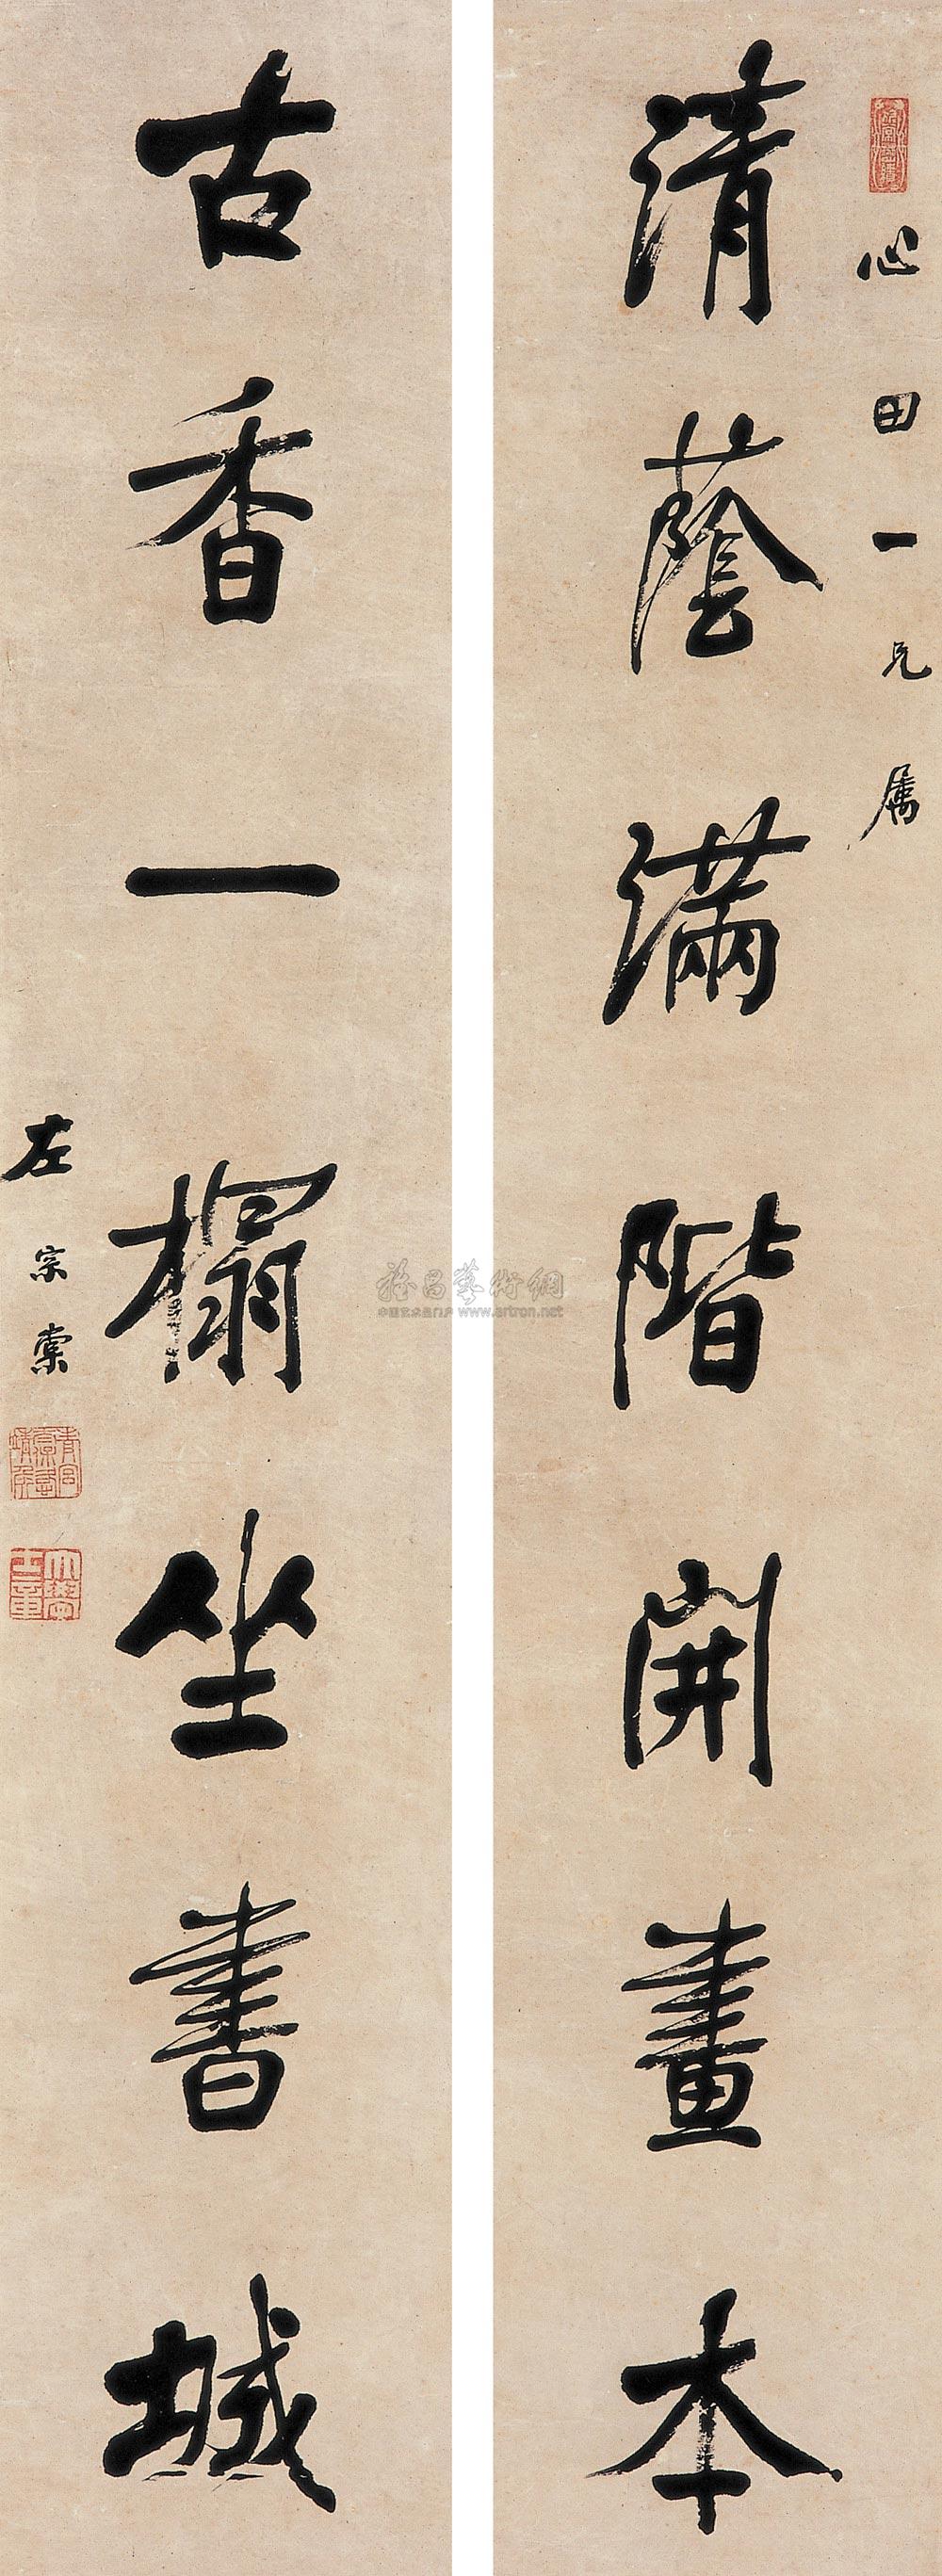 心田一兄属
清蔭滿階開畫本
古香一榻坐書城
左宗棠
雅昌藝術網
中国艺术品门户 www.artron.net